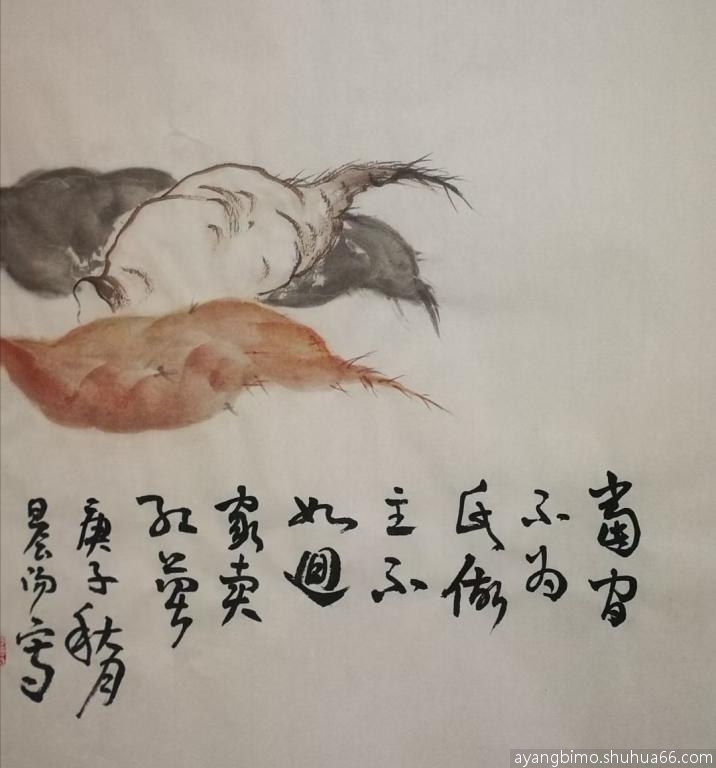 當官
不为
民做
主不
如迴
家卖
红薯
庚子秋月
晨阳写
ayangbimo.shuhua66.com